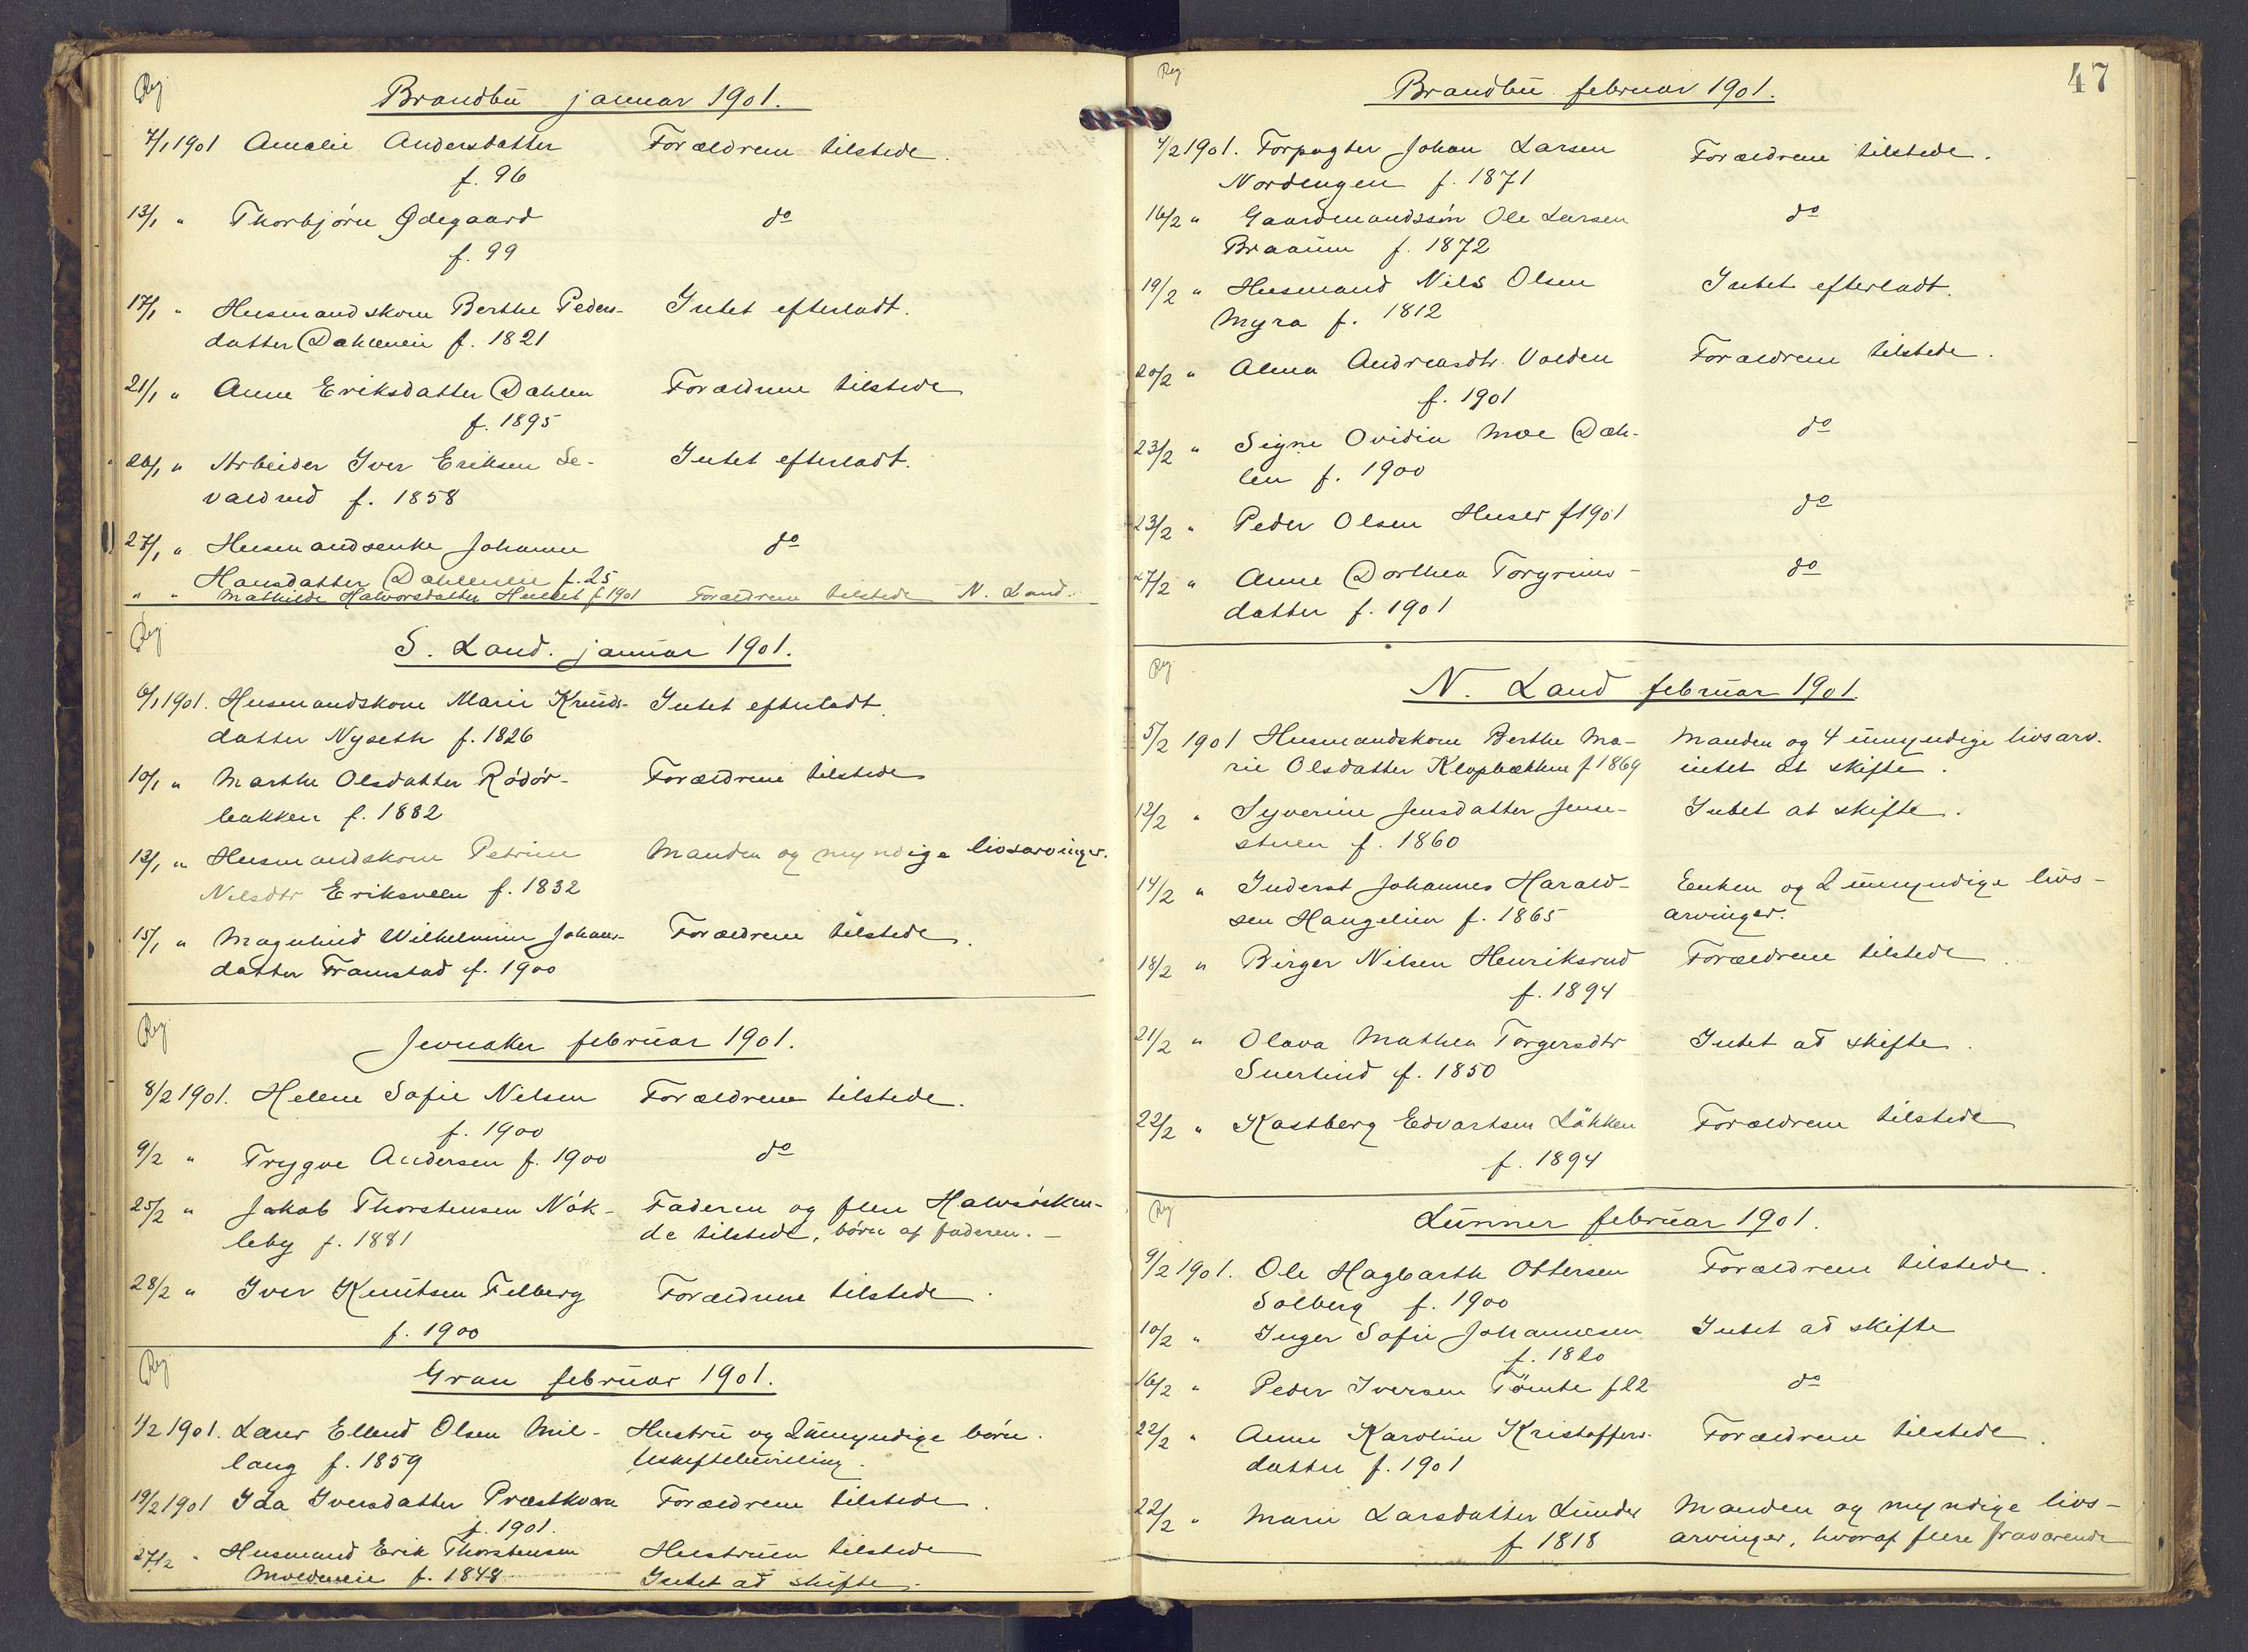 Reg
Brandbu januar 1901.
7/1 1901 Amalie Andersdatter Forældrene tilstede.
f. 96
13/1 " Thorbjørn Ødegaard do
f. 99
17/1 " Husmandskone Berthe Peders- Intet efterladt.
datter Dahleneie f. 1821
21/1 " Anne Eriksdatter Dahlen Forældrene tilstede
f. 1895
26/1 " Arbeider Iver Eriksen Se- Intet efterladt.
valdrud f. 1858
27/1 " Husmandsenke Johanne do
Hansdatter Dahleneie f. 25
" " Mathilde Halvorsdatter f 1901 Forældrene tilstede N. Land.
Reg
S. Land. januar 1901.
6/1 1901. Husmandskone Marie Knuds- Intet efterladt.
datter Nyseth f. 1826
10/1 " Marthe Olsdatter Rödör- Forældrene tilstede
bakken f. 1882
13/1 " Husmandskone Petrine Manden og myndige livsarvinger.
Nilsdtr Eriksveen f. 1832
15/1 " Magnhild Wilhelmine Johans- Forældrene tilstede.
datter Framstad f. 1900
Reg
Jevnaker februar 1901.
8/2 1901. Helene Sofie Nilsen Forældrene tilstede.
f. 1900
9/2 " Trygve Andersen f. 1900 do
25/2 " Jakob Thorstensen Nök- Faderen og flere Halvsösken-
leby f. 1881 de tilstede, börn af faderen. -
28/2 " Iver Knutsen Felberg Forældrene tilstede.
f. 1900
Reg
Gran februar 1901.
1/2 1901. Lærer Ellend Olsen Mil- Hustru og 2 umyndige börn.
lang f. 1859 Uskiftebevilling.
19/2 1901 Ida Iversdatter Præstkværn Forældrene tilstede.
f. 1901.
27/2 " Husmand Erik Thorstensen Hustruen tilstede
Moldeneie f. 1848 Intet at skifte.
47
Reg
Brandbu februar 1901.
4/2 1901. Forpagter Johan Larsen Forældrene tilstede.
Nordengen f. 1871
16/2 " Gaardmandssön Ole Larsen do
Braaum f. 1872
19/2 " Husmand Nils Olsen Intet efterladt.
Myra f. 1812
20/2 " Alma Andreasdtr. Volden Forældrene tilstede.
f. 1901
23/2 " Signe Ovidia Moe Dah- do
len f. 1900
23/2 " Peder Olsen Huser f 1901 do
27/2 " Anne Dorthea Torgrims- do
datter f. 1901
Reg
N. Land februar 1901.
5/2 1901 Husmandskone Berthe Ma- Manden og 4 umyndige livsarv.
rie Olsdatter Klopbakken f 1869 intet at skifte.
12/2 " Syverine Jensdatter Jense- Intet at skifte.
stuen f. 1860
14/2 " Inderst Johannes Harald- Enken og 2 umyndige livs-
sen Haugelien f. 1865 arvinger.
18/2 " Birger Nilsen Henriksrud Forældrene tilstede.
f. 1894
21/2 " Olava Mathea Torgersdtr Intet at skifte.
f. 1850
22/2 " Kastberg Edvartsen Lökken Forældrene tilstede
f. 1894
Reg
Lunner februar 1901.
9/2 1901. Ole Hagbarth Ottersen Forældrene tilstede.
Solberg f. 1900
10/2 " Inger Sofie Johannesen Intet at skifte
f. 1820
16/2 " Peder Iversen Tömte f 22 do
22/2 " Anne Karoline Kristoffers- Forældrene tilstede.
datter f. 1901
22/2 " Marie Larsdatter Lunder Manden og myndige livs-
f 1818 arvinger, hvoraf flere fraværende